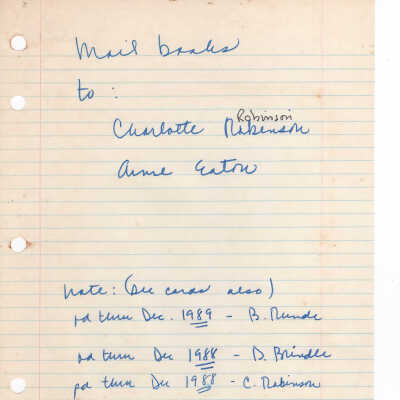 Mail books
to :
Robinson
Charlotte Robinson
Anne Eaton
note: (see cards also)
pd thru Dec. 1989 - B. Runde
pd thru Dec 1988 - D. Brindle
pd thru Dec 1988 - C. Robinson